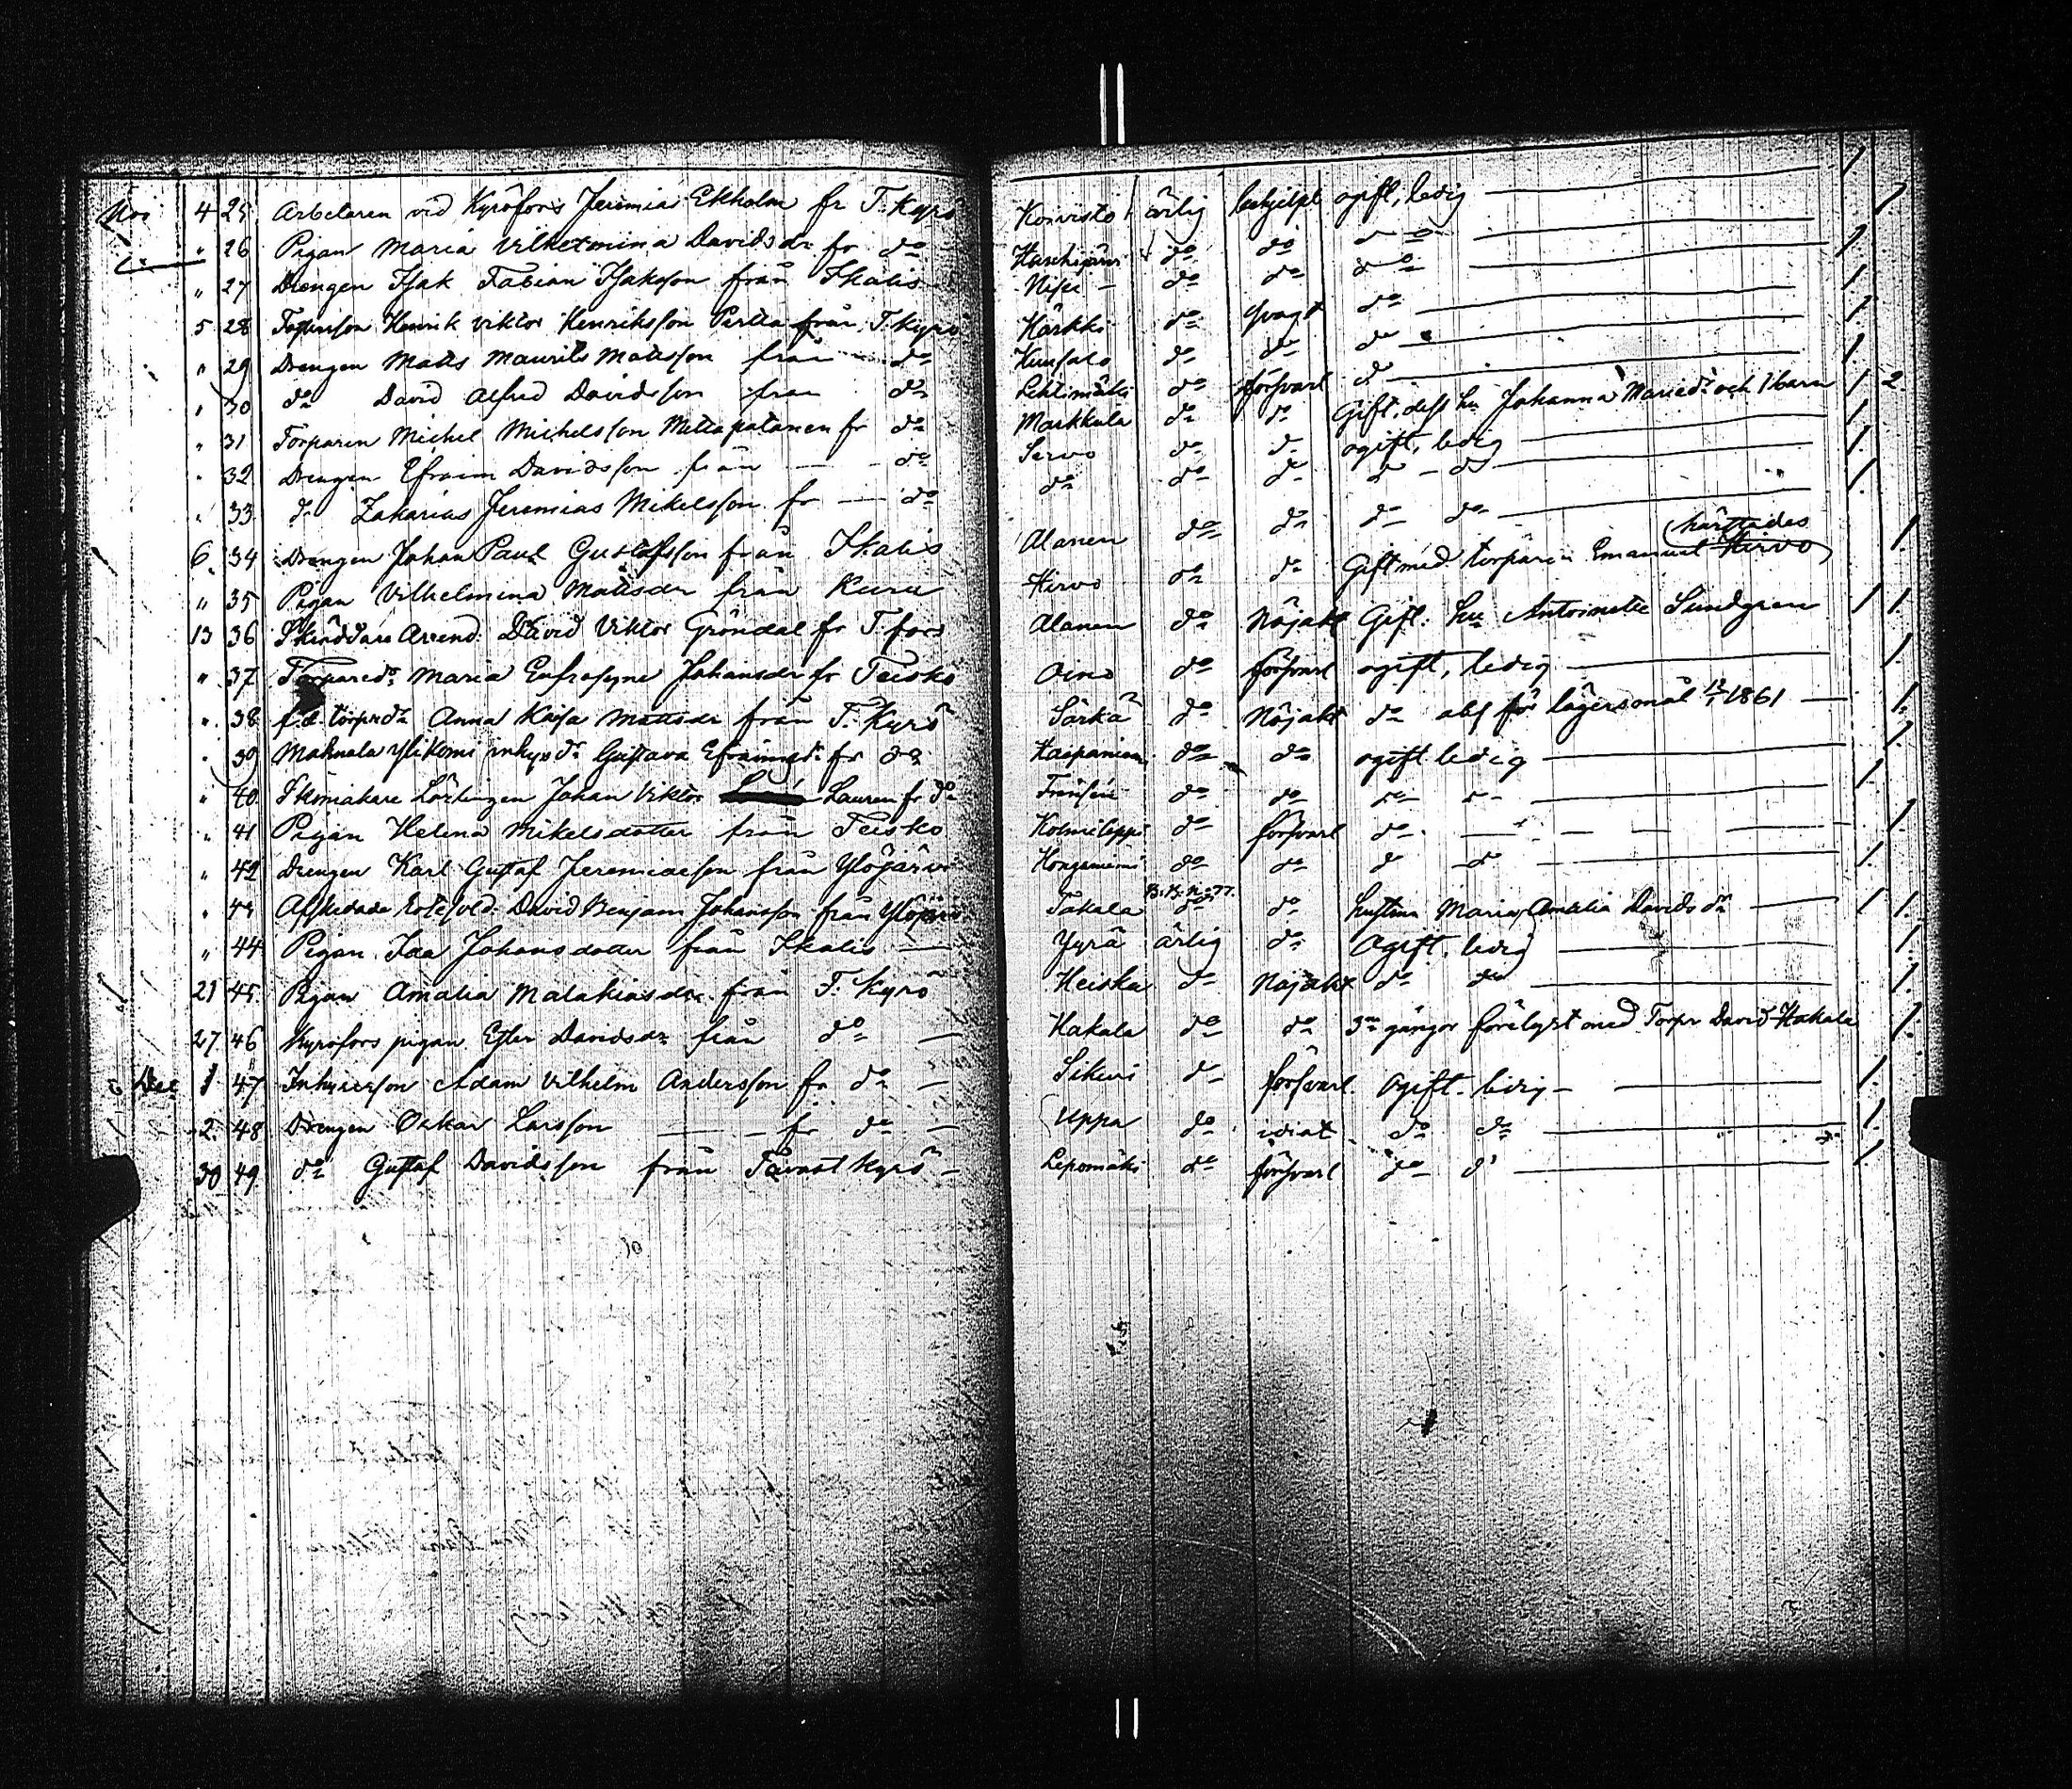 Nov 4 25 Arbetaren vid Kyröfors Jeremias Ekholm fr T. Kyrö Koivisto ärlig behjelpl ogift, ledig 1
" 26 Pigan Maria Vilhelmina Davidsdr fr do do do do 1
" 27 Drengen Isak Fabian Isaksson från Ikalis do do do 1
5 28 Torparson Henrik Viktor Henriksson Perttu från T. Kyrö Härkki do svagt do 1
" 29 Drengen Matts Maurits Mattsson från do do do do 1
" 30 do David Alfred Davidsson från do Lehtimäki do försvarl do 1
" 31 Torparen Michel Michelsson Mettapatanen fr do Markkula do do Gift, dess hu Johanna Mariedr och 1 barn 1 2
" 32 Drengen Efraim Davidsson från do Servo do do ogift, ledig 1
" 33 do Zakarias Jeremias Mikelsson fr do do do do do do 1
6 34 Drengen Johan Paul Gustafsson från Ikalis Alanen do do do do 1
" 35 Pigan Vilhelmina Mattsdr från Kuru Hirvo do do Gift med torparen Emanuel Hirvo härstädes 1
13 36 Skräddare Arrend. David Viktor Gröndal fr T. fors Alanen do Nöjakt Gift. hu Antoinette Sundgren 1 1
" 37 Torparedr Maria Eufrosyne Johansdr fr Teisko Oino do försvarl ogift, ledig 1
" 38 f.d. torpardr Anna Kajsa Mattsdr från T. Kyrö Särkä do Nöjakt do abs för lägersmål 1861 1
" 39 Mahnala Ylikomi inhysdr Gustava Efraimsdr fr do do do ogift ledig 1
" 40 Skomakare Lärlingen Johan Viktor Lauren fr do do do do do 1
" 41 Pigan Helena Mikelsdotter från Teisko do försvarl do 1
" 42 Drengen Karl Gustaf Jeremiasson från Ylöjärvi Hongonniemi do do do do 1
" 43 Afskedade David Benjam Johansson från Ylöjärvi Takala B.B. No 77. do do hustrun Maria Amalia Davidsdr 1 1
" 44 Pigan Ida Johansdotter från Ikalis Yyrä ärlig do Ogift, ledig 1
21 45 Pigan Amalia Malakiasdr från T. Kyrö Heiska do Nöjakt do do 1
27 46 Kyröfors pigan Ester Davidsdr från do Hakala do do 3ne gångor förelyst med Torpr David Hakala 1
Dec 1 47 Inhyseson Adam Vilhelm Andersson fr do Sikuri do försvarl Ogift. ledig 1
2 48 Drengen Oskar Larsson fr do Uppa do idiot do do 1
30 49 do Gustaf Davidsson från Tavastkyrö Lepomäki do försvarl do do 1